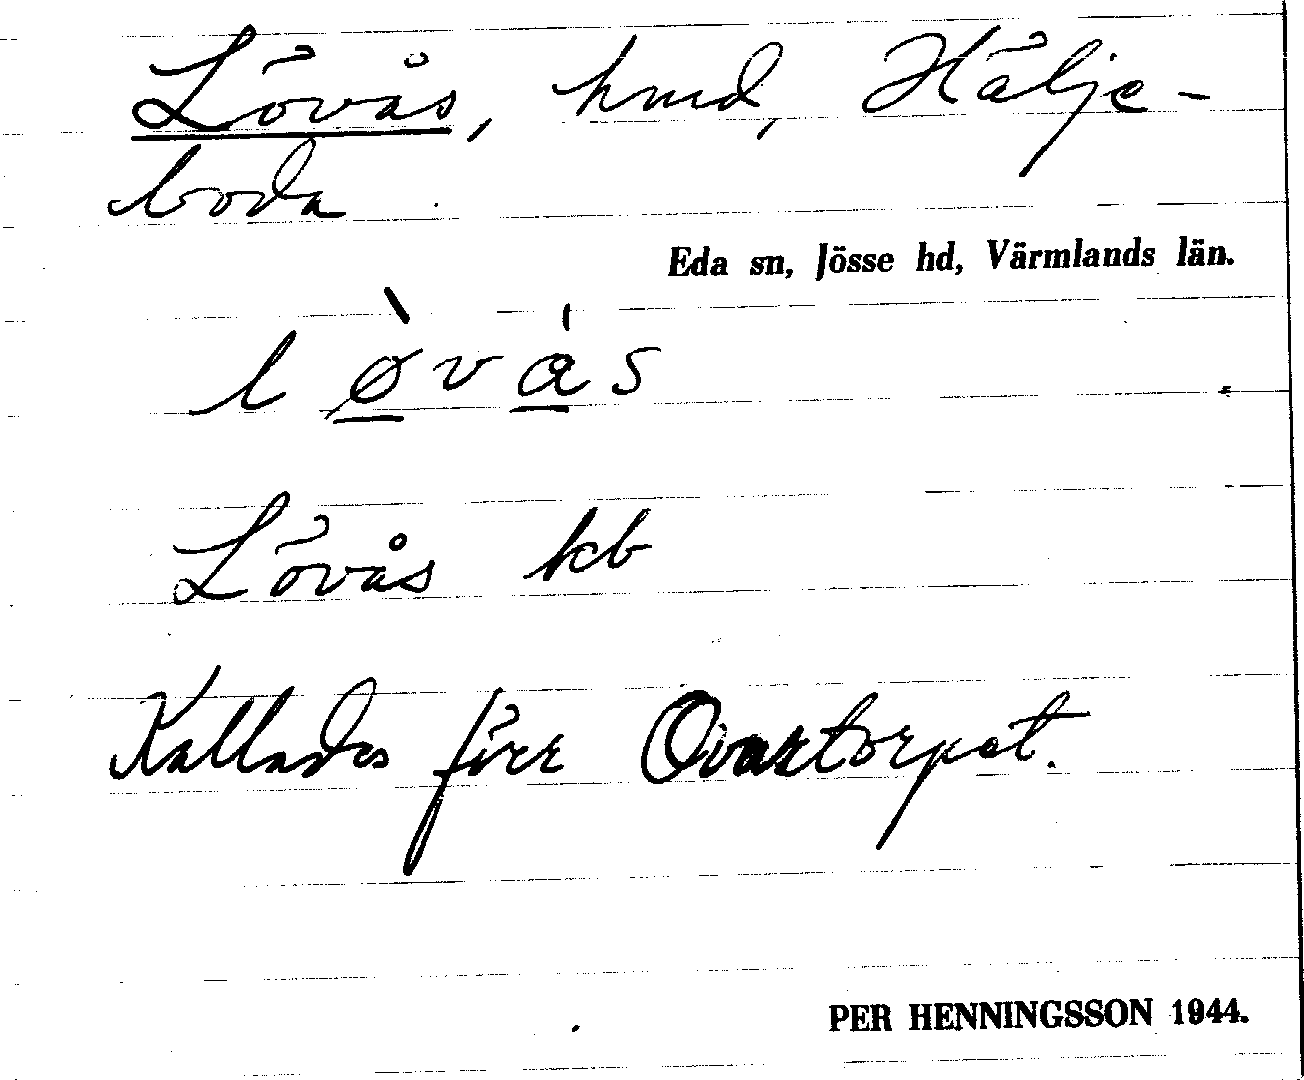 Lövås, hmd, Hälje-
boda
Eda sn, Jösse hd, Värmlands län.
l ø̀ v ǻ s
Lövås kb
Kallades förr Ovantorpet.
PER HENNINGSSON 1944.